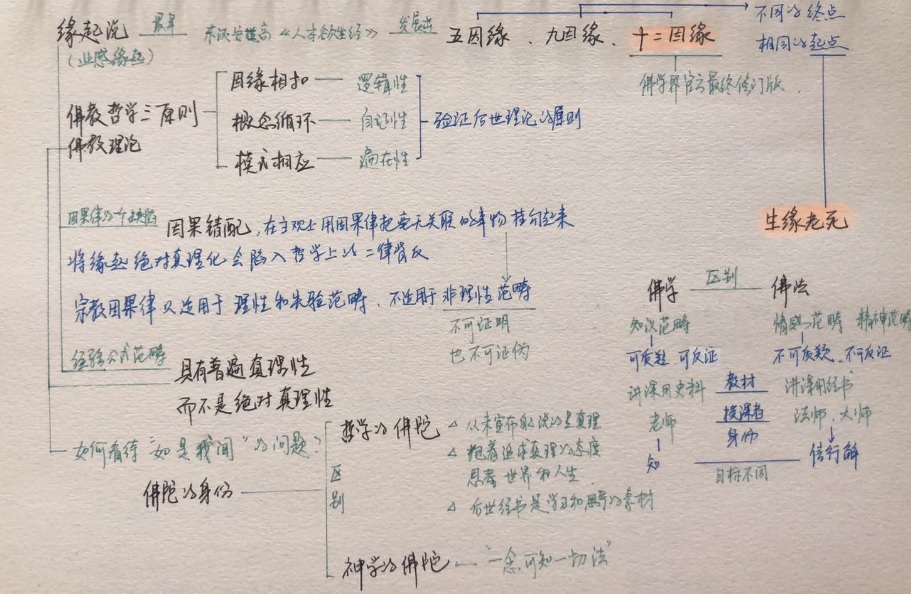 缘起说 最早 东汉安世高《人本欲生经》 发展出 五因缘、九因缘、十二因缘
(业感缘起)
不同的终点
相同的起点
佛学界官方最终修订版
生缘老死
佛教哲学三原则
因缘相扣 逻辑性
概念循环 自证性
模式相应 遍在性
验证后世理论的原则
佛教理论
因果错配,在主观上用因果律把毫无关联的事物挂钩起来
将缘起绝对真理化会陷入哲学上的二律背反
宗教因果律只适用于理性和先验范畴,不适用于非理性范畴
不可证明
也不可证伪
经验公式范畴
具有普遍真理性
而不是绝对真理性
如何看待“如是我闻”的问题?
佛陀的身份
区别
哲学的佛陀
从未宣布自己说的是真理
抱着追求真理的态度
思考世界和人生
后世经书是学习和思考的素材
神学的佛陀 “一念可知一切法”
佛学 区别 佛法
知识范畴 情感的范畴 精神范畴
可质疑、可反证 不可质疑、不可反证
讲课用史料 教材 讲课用经书
老师 授课者身份 法师、大师
知 目标不同 信行解